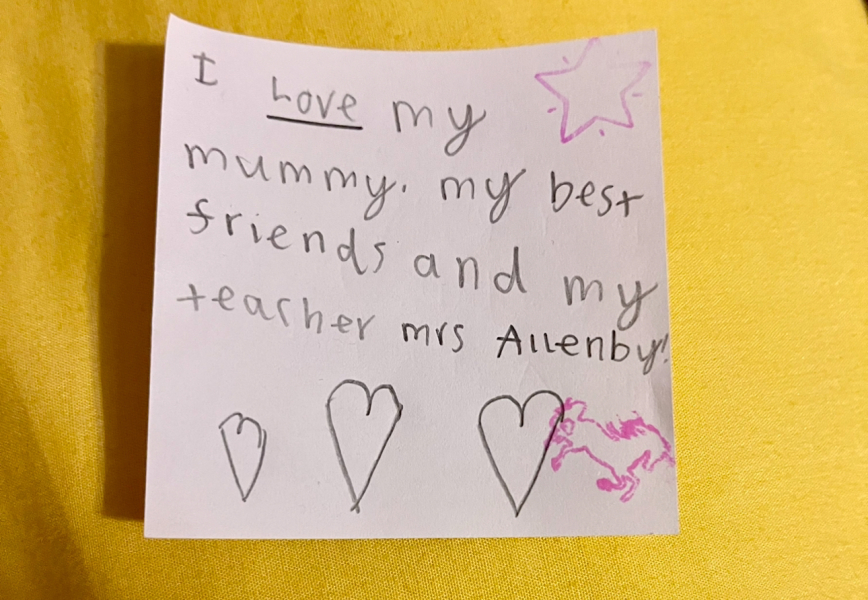 I Love my
mummy. my best
friends and my
teacher mrs Allenby!